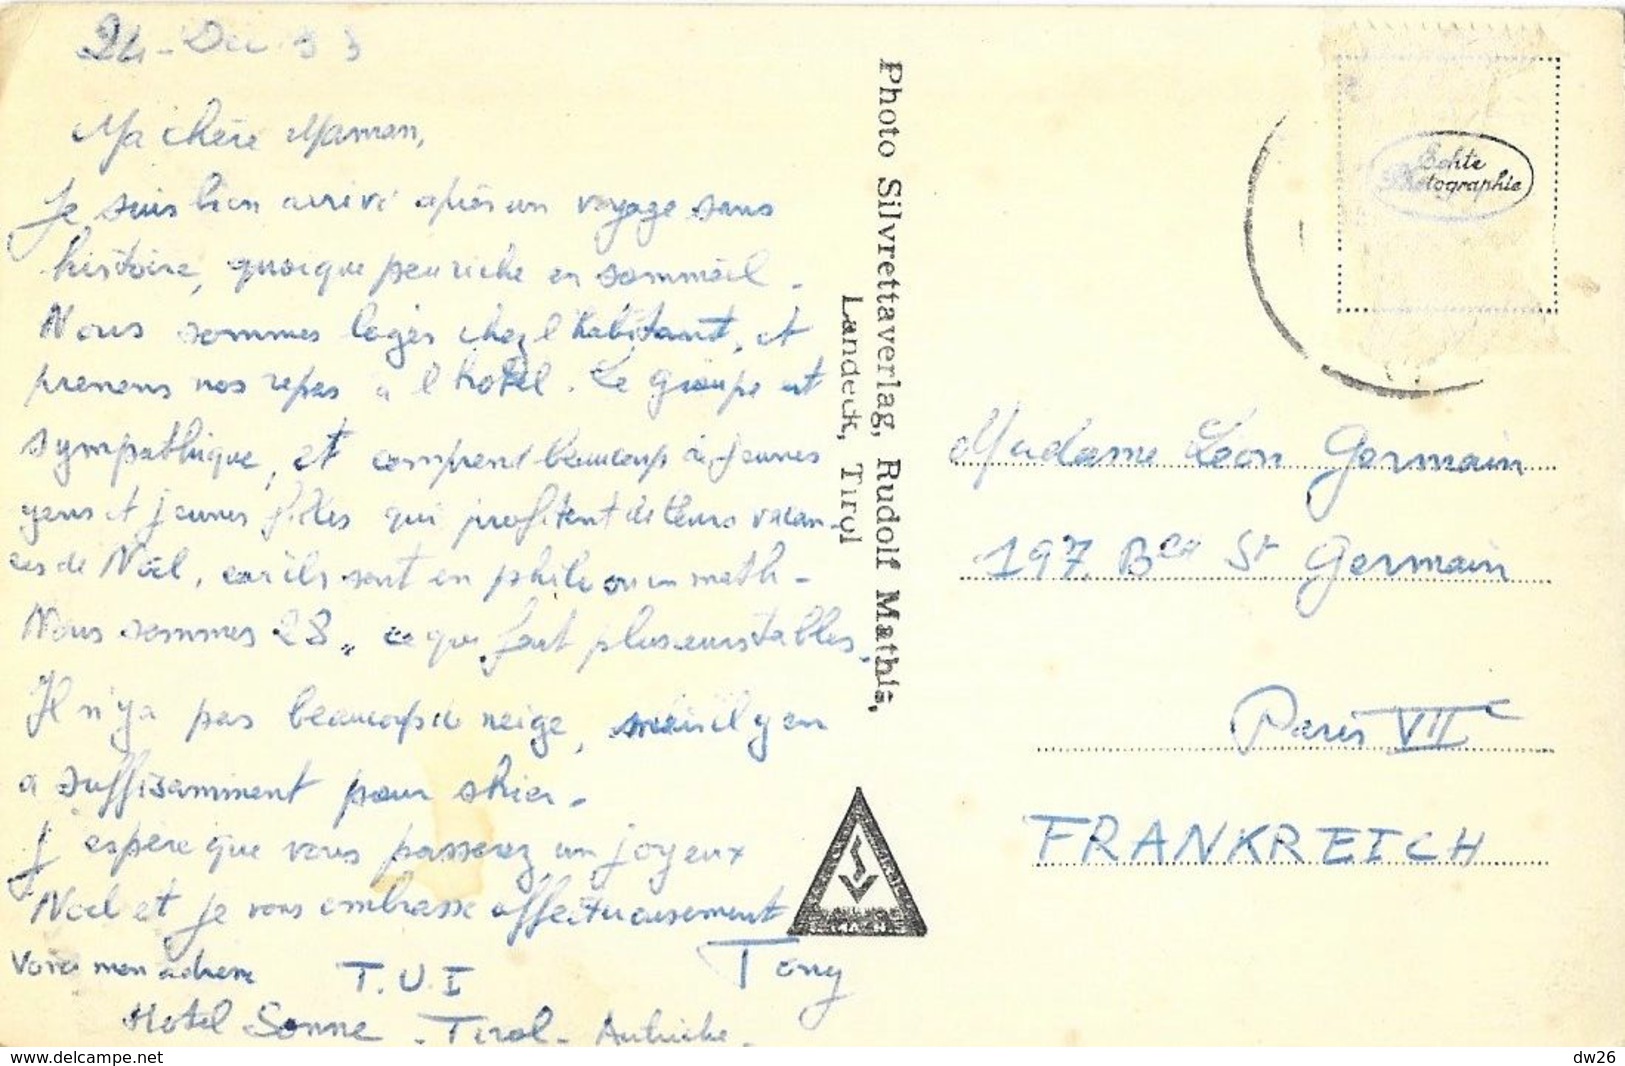 24 - Dec 53
Ma chère Maman,
Je suis bien arrivé après un voyage sans
histoire, quoique peu riche en sommeil.
Nous sommes logés chez l'habitant, et
prenons nos repas à l'hotel. Le groupe est
sympathique, et comprend beaucoup de jeunes
gens et jeunes filles qui profitent de leurs vacan-
ces de Noël, car ils sont en philo ou en math-
Nous sommes 28, ce qui fait plusieurs tables.
Il n'y a pas beaucoup de neige, mais il y en
a suffisamment pour skier.
J'espère que vous passerez un joyeux
Noël et je vous embrasse affectueusement
Tony
Voici mon adresse T.U.I
Hotel Sonne - Tirol - Autriche.
Photo Silvrettaverlag, Rudolf Mathis,
Landeck, Tirol
Echte
Photographie
Madame Léon Germain
197, Bd St Germain
Paris VII
FRANKREICH
dw26
www.delcampe.net